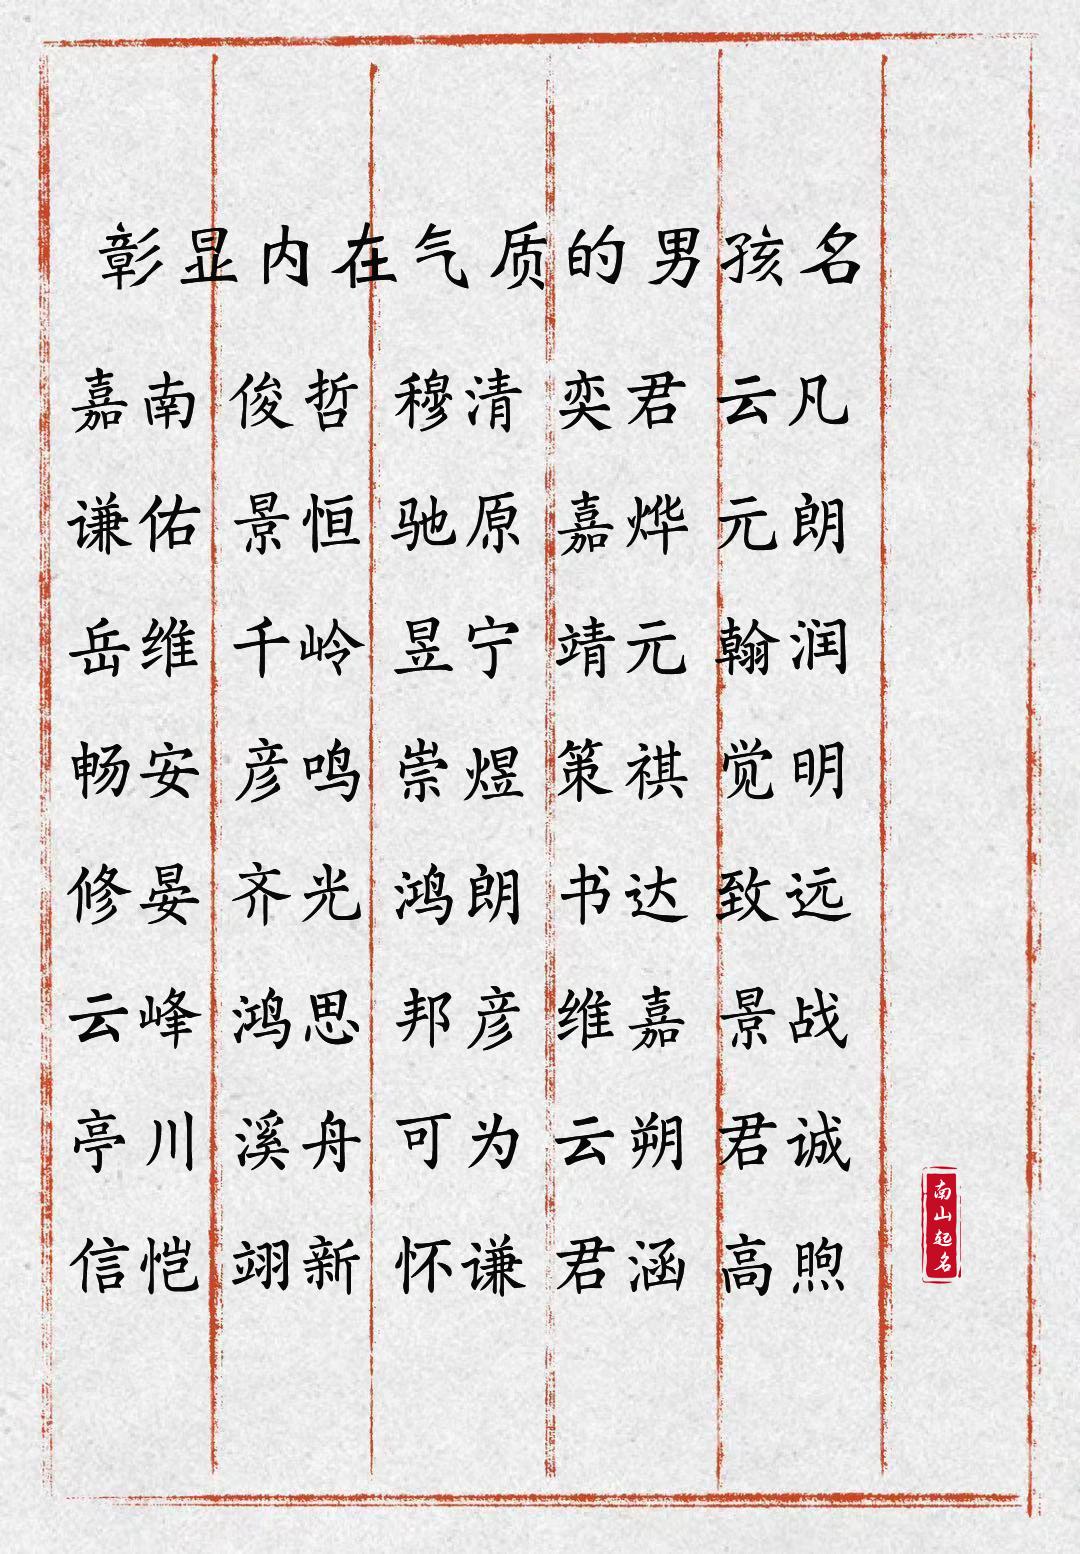 彰显内在气质的男孩名
嘉南 俊哲 穆清 奕君 云凡
谦佑 景恒 驰原 嘉烨 元朗
岳维 千岭 昱宁 靖元 翰润
畅安 彦鸣 崇煜 策祺 觉明
修晏 齐光 鸿朗 书达 致远
云峰 鸿思 邦彦 维嘉 景战
亭川 溪舟 可为 云朔 君诚
信恺 翊新 怀谦 君涵 高煦
南山起名